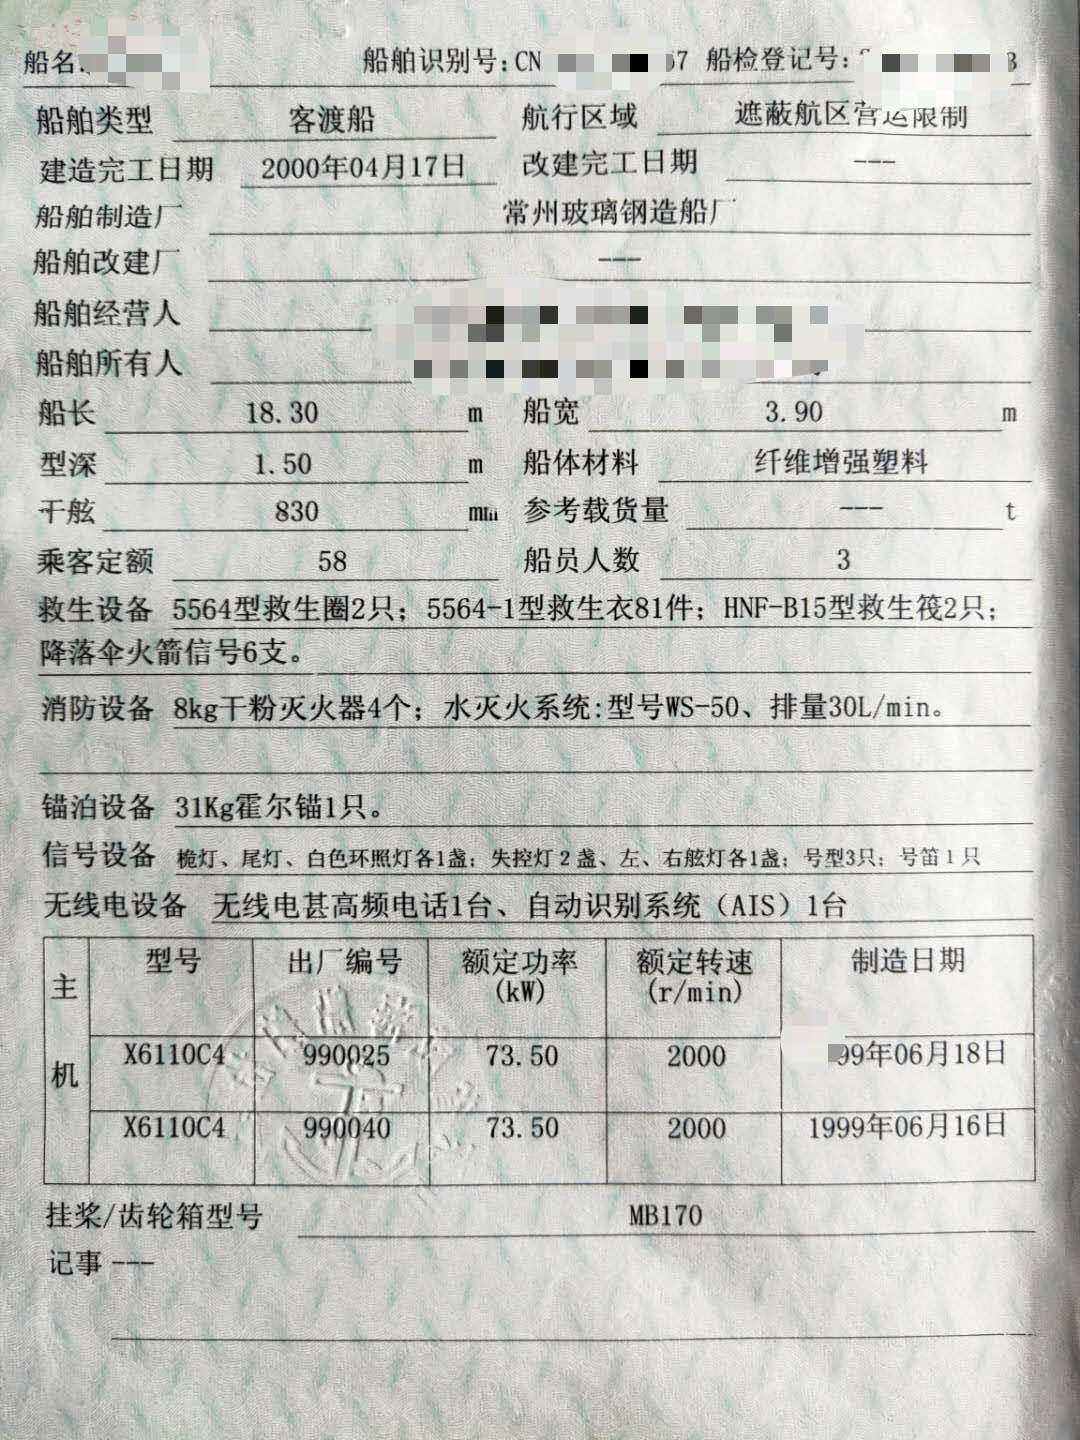 船名
船舶识别号:CN 67 船检登记号: 3
船舶类型 客渡船 航行区域 遮蔽航区营运限制
建造完工日期 2000年04月17日 改建完工日期 ---
船舶制造厂 常州玻璃钢造船厂
船舶改建厂 ---
船舶经营人
船舶所有人
船长 18.30 m 船宽 3.90 m
型深 1.50 m 船体材料 纤维增强塑料
干舷 830 mm 参考载货量 --- t
乘客定额 58 船员人数 3
救生设备 5564型救生圈2只；5564-1型救生衣81件；HNF-B15型救生筏2只；
降落伞火箭信号6支。
消防设备 8kg干粉灭火器4个；水灭火系统:型号WS-50、排量30L/min。
锚泊设备 31Kg霍尔锚1只。
信号设备 桅灯、尾灯、白色环照灯各1盏；失控灯2盏、左、右舷灯各1盏；号型3只；号笛1只
无线电设备 无线电甚高频电话1台、自动识别系统（AIS）1台
主机
型号 出厂编号 额定功率 额定转速 制造日期
(kW) (r/min)
X6110C4 990025 73.50 2000 99年06月18日
X6110C4 990040 73.50 2000 1999年06月16日
挂桨/齿轮箱型号 MB170
记事 ---